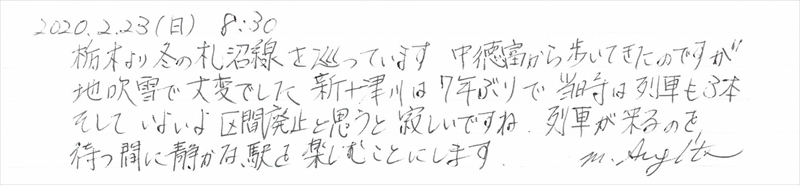 2020.2.23(日) 8:30
栃木より冬の札沼線を巡っています 中徳富から歩いてきたのですが
地吹雪で大変でした 新十津川は7年ぶりで 当時は列車も3本
そして いよいよ 区間廃止と思うと 寂しいですね. 列車が来るのを
待つ間に静かな駅を楽しむことにします.